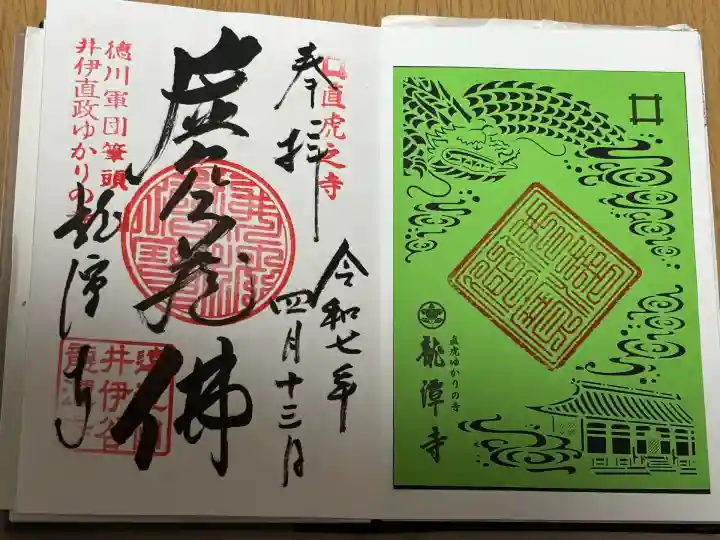 直虎之寺
奉拝
令和七年
四月十三日
虚空蔵佛
徳川軍団筆頭
井伊直政ゆかりの寺
龍潭寺
井伊谷
直虎ゆかりの寺
龍潭寺